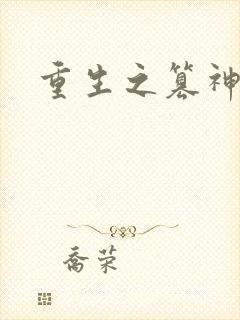 重生之篡神
喬荣